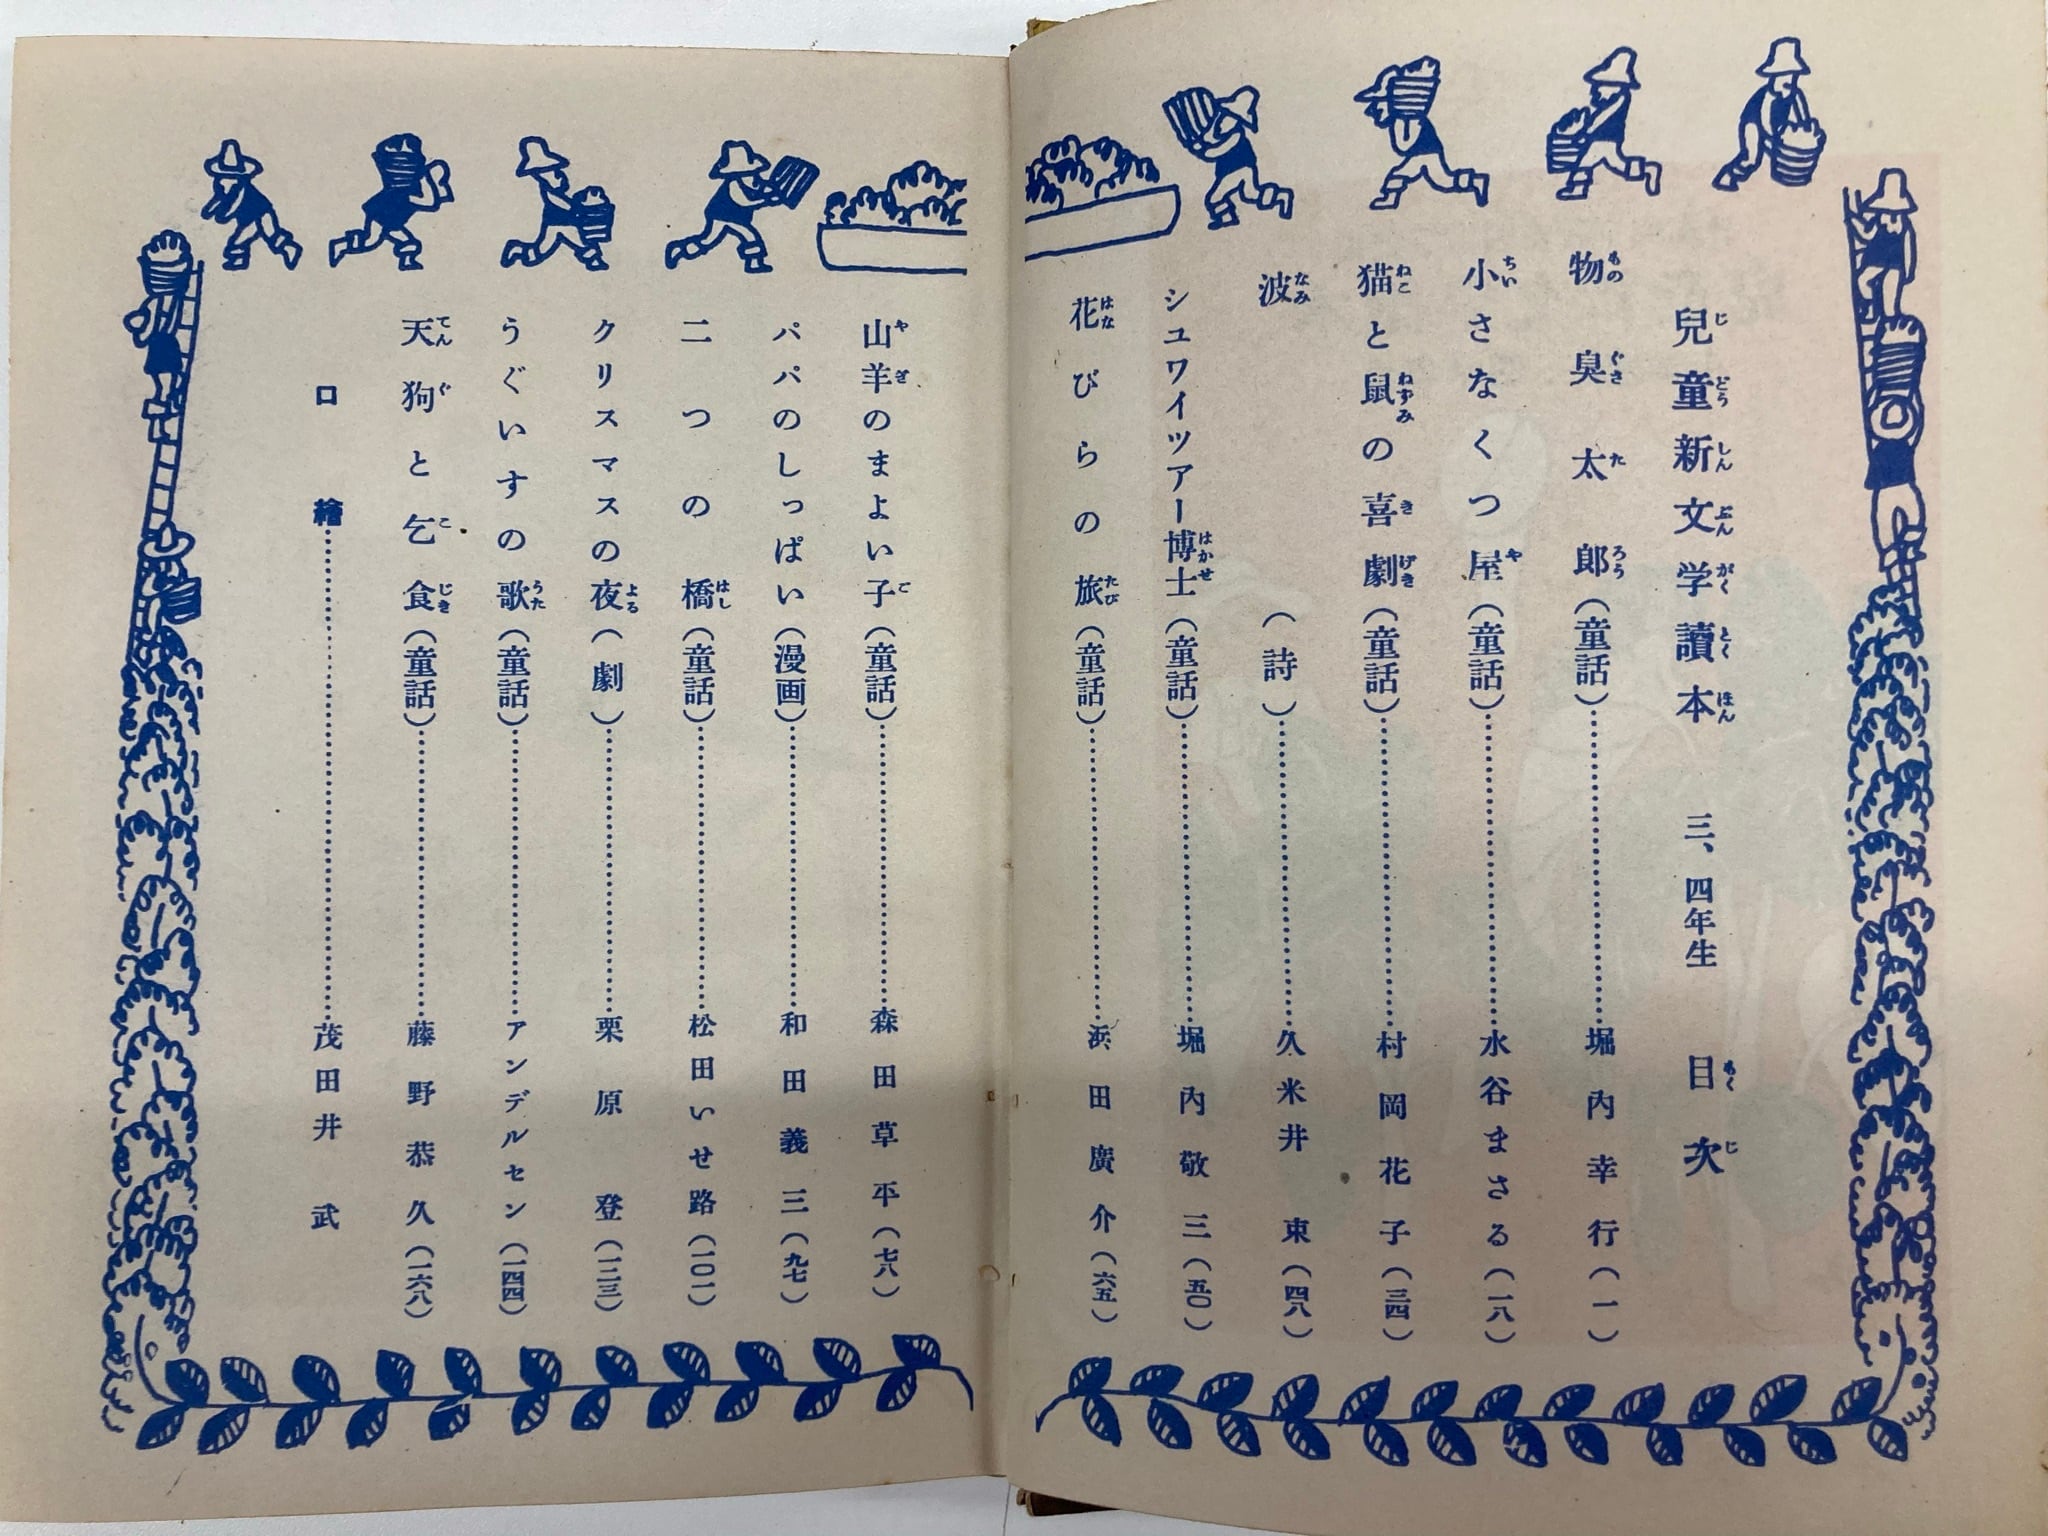 兒童新文学讀本 三、四年生 目次
物臭太郎(童話)……堀内幸行(一)
小さなくつ屋(童話)……水谷まさる(一八)
猫と鼠の喜劇(童話)……村岡花子(三四)
波(詩)……久米井束(四八)
シュワイツアー博士(童話)……堀内敬三(五〇)
花びらの旅(童話)……浜田廣介(六五)
山羊のまよい子(童話)……森田草平(七八)
パパのしっぱい(漫画)……和田義三(九七)
二つの橋(童話)……松田いせ路(一〇一)
クリスマスの夜(劇)……栗原登(一二三)
うぐいすの歌(童話)……アンデルセン(一四四)
天狗と乞食(童話)……藤野恭久(一六八)
口繪……茂田井武